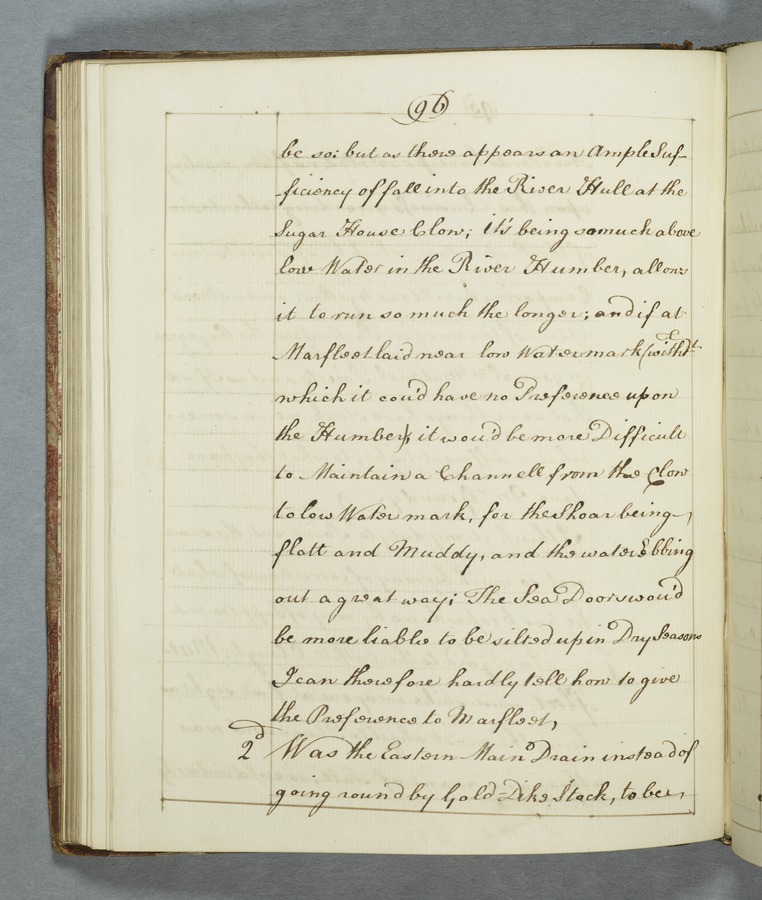 96
be so: but as there appears an Ample Suf-
-ficiency of fall into the River Hull at the
Sugar House Clow; it's being so much above
low Water in the River Humber, allows
it to run so much the longer; and if at
Marfleet laid near low Water mark (witht
which it cou'd have no Preference upon
the Humber); it wou'd be more Difficult
to Maintain a Channell from the Clow
to low Water mark, for the Shoar being
flatt and Muddy, and the water Ebbing
out a great way; The Sea Doors wou'd
be more liable to be silted up in Dry Seasons
I can therefore hardly tell how to give
the Preference to Marfleet,
2d Was the Eastern Main Drain instead of
going round by Gold-Dike Stock, to be,